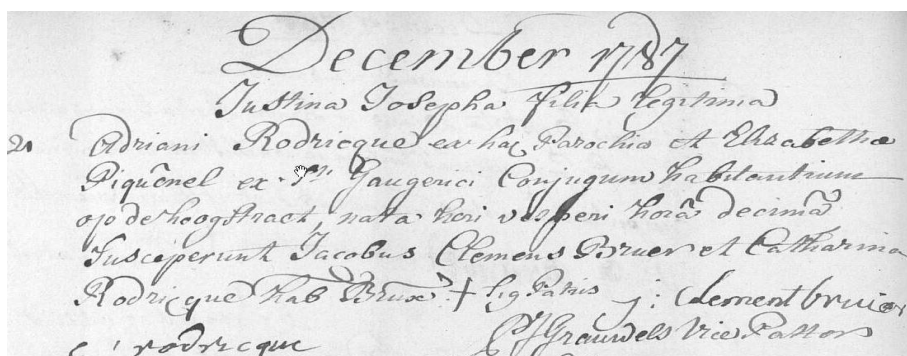 December 1787
Justina Josepha filia legitima
21 Adriani Rodricque ex hac Parochia et Elisabethæ
Piquênel ex Sti Gaugerici Conjugum habitantium
op de hoogstraet, nata heri vesperi horâ decimâ
Susceperunt Jacobus Clemens Bruer et Catharina
Rodricque hab Brux. + sig Patris j: Clement bruier
rodricque Grauwels Vice Pastor